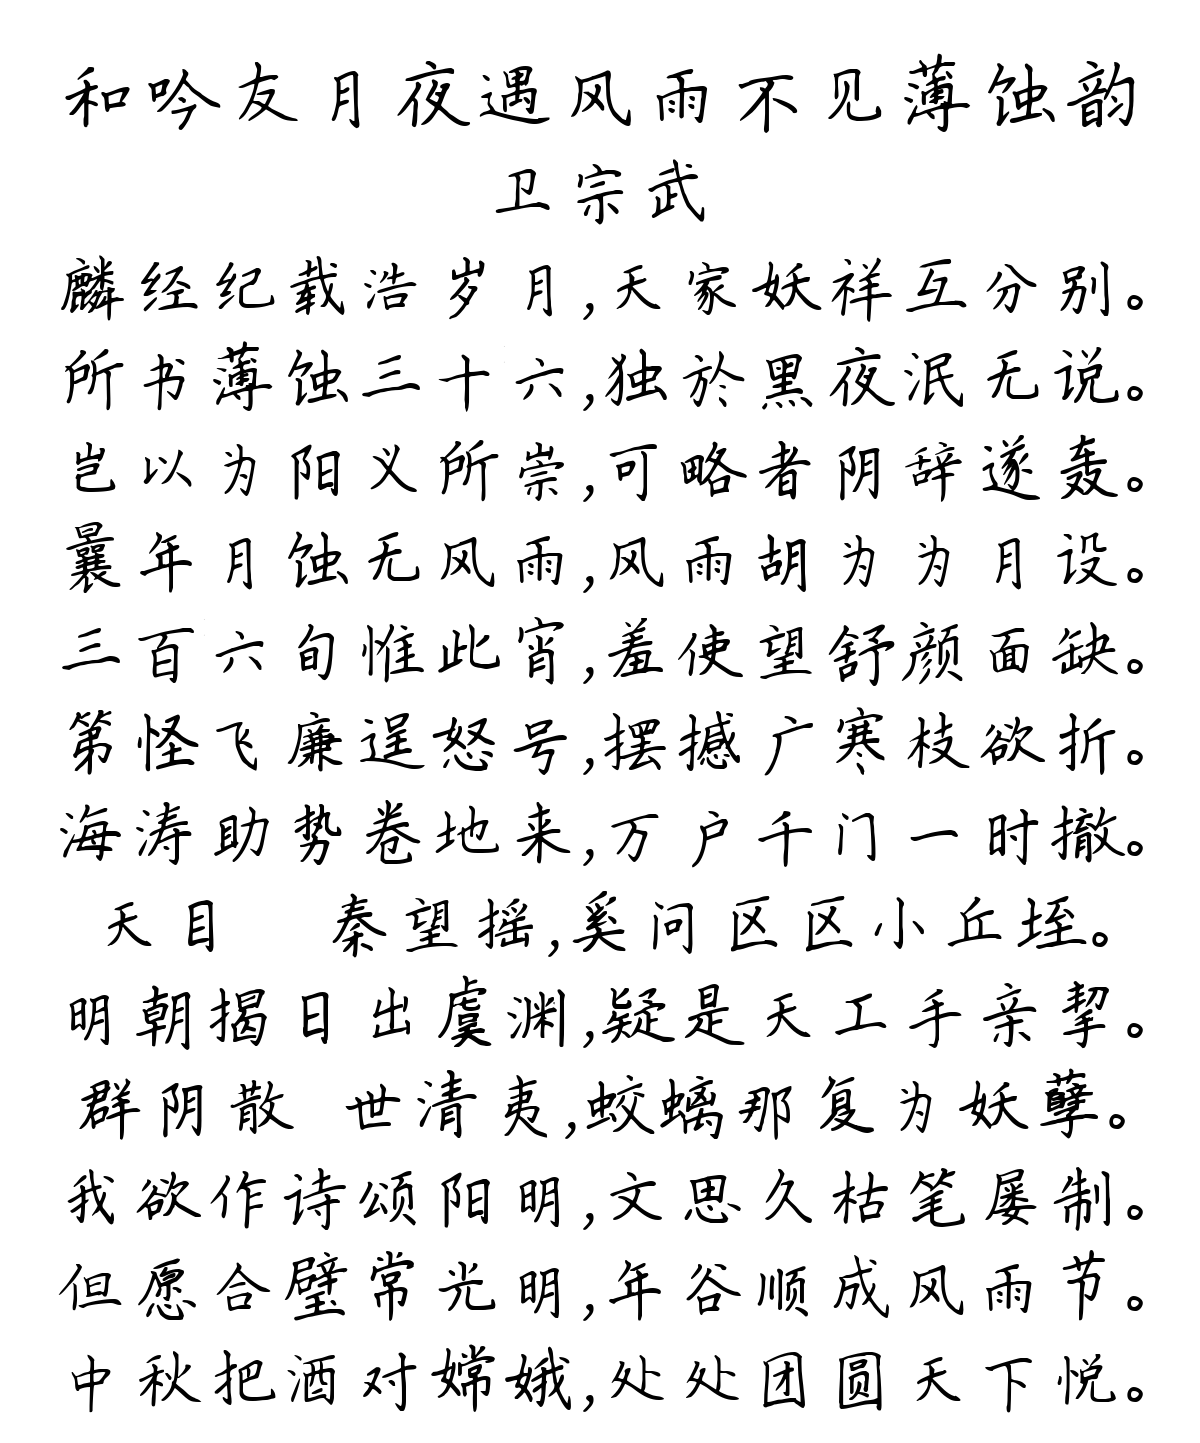 和吟友月夜遇风雨不见薄蚀韵
卫宗武
麟经纪载浩岁月,天家妖祥互分别。
所书薄蚀三十六,独於黑夜泯无说。
岂以为阳义所崇,可略者阴辞遂轰。
曩年月蚀无风雨,风雨胡为为月设。
三百六旬惟此宵,羞使望舒颜面缺。
第怪飞廉逞怒号,摆撼广寒枝欲折。
海涛助势卷地来,万户千门一时撤。
天目 秦望摇,奚问区区小丘垤。
明朝揭日出虞渊,疑是天工手亲挈。
群阴散 世清夷,蛟螭那复为妖孽。
我欲作诗颂阳明,文思久枯笔屡制。
但愿合璧常光明,年谷顺成风雨节。
中秋把酒对嫦娥,处处团圆天下悦。